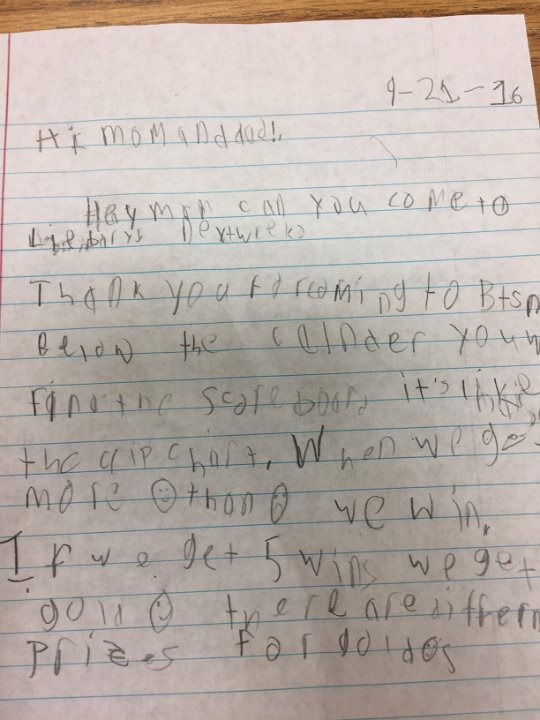 9-21-16
Hi mom and dad!
Hey mam can you come to
next week?
Thank you for coming to Btsn
Below the calnder you w
find the scoreboard it's like
the clip chart. When we get
more ☺ than ☹ we win.
If we get 5 wins we get
gold ☺ there are differn
prizes for gold